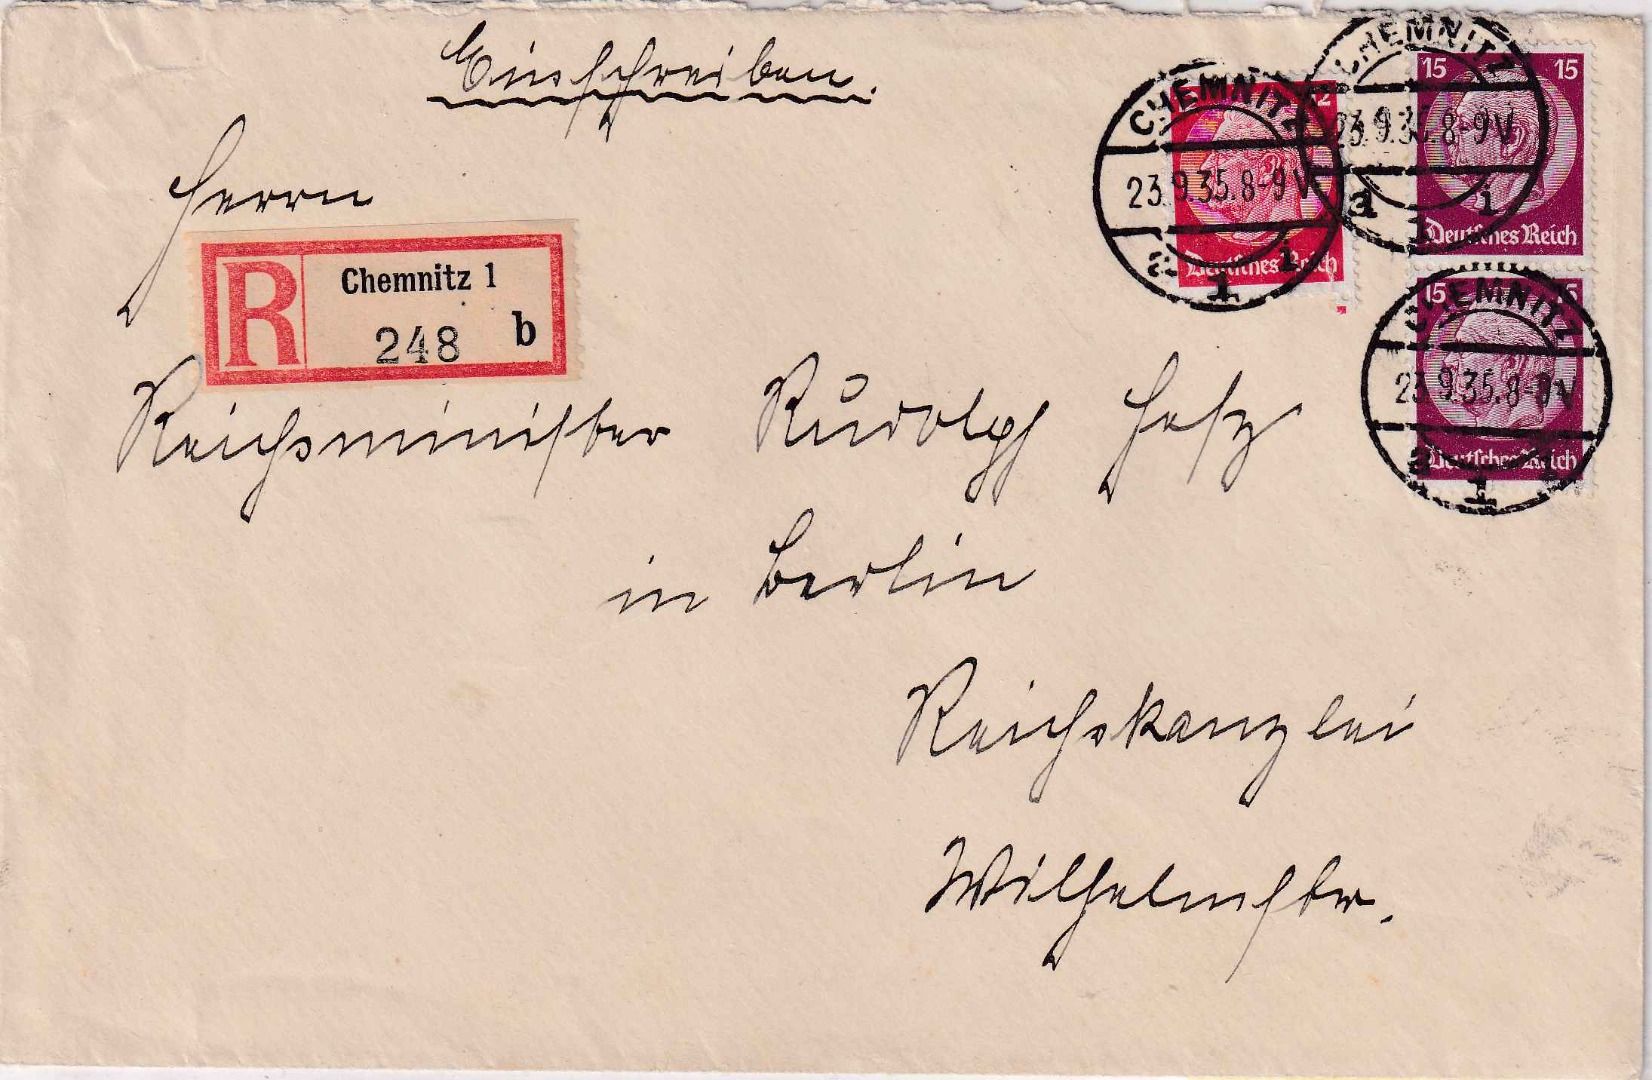 Einschreiben.
Herrn
R Chemnitz 1
248 b
Reichsminister Rudolf Heß
in Berlin
Reichskanzlei
Wilhelmstr.
CHEMNITZ
23.9.35.8-9V
a 1 i
12
Deutsches Reich
CHEMNITZ
23.9.35.8-9V
a 1 i
15 15
Deutsches Reich
CHEMNITZ
23.9.35.8-9V
1
15 15
Deutsches Reich